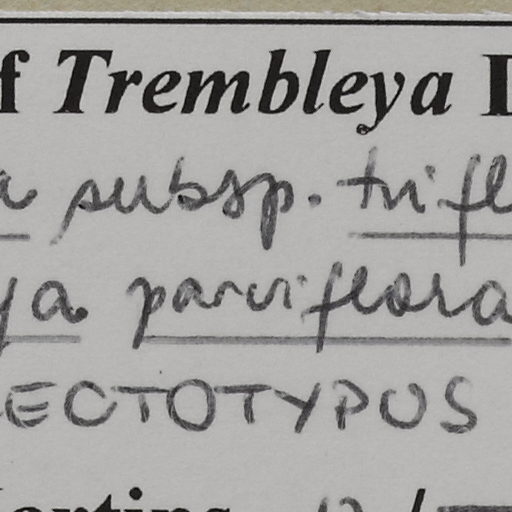 f Trembleya D
a subsp. trifl
ya parviflora
ECTOTYPUS
artins